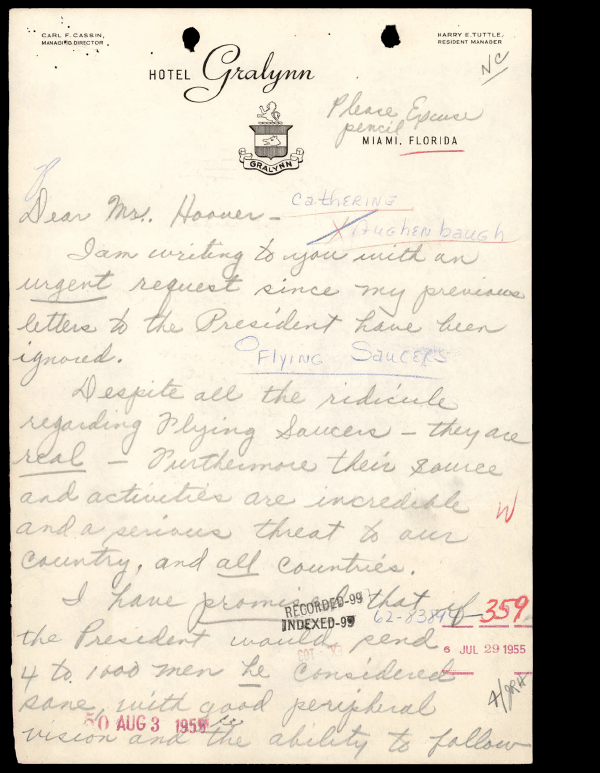 CARL F. CASSIN,
MANAGING DIRECTOR
HARRY E. TUTTLE,
RESIDENT MANAGER
NC
HOTEL Gralynn
Please Excuse
pencil
MIAMI, FLORIDA
GRALYNN
Dear Mr. Hoover –
CATHERINE
Hughenbaugh
I am writing to you with an
urgent request since my previous
letters to the President have been
ignored.
FLYING SAUCERS
Despite all the ridicule
regarding Flying Saucers – they are
real – Furthermore their source
and activities are incredible
and a serious threat to our
country, and all countries.
I have promised that if
RECORDED-99
INDEXED-99
62-83894-359
the President would send
6 JUL 29 1955
4 to 1000 men he considered
sane, with good peripheral
50 AUG 3 1955
vision and the ability to follow